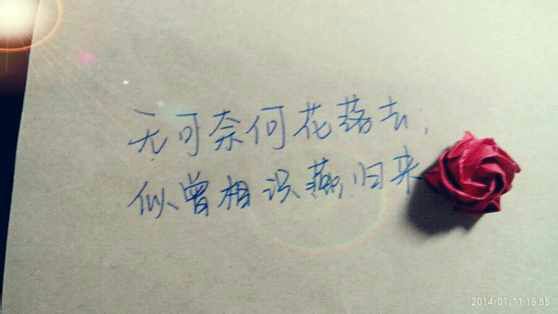 无可奈何花落去,
似曾相识燕归来
2014/01/11 16:55